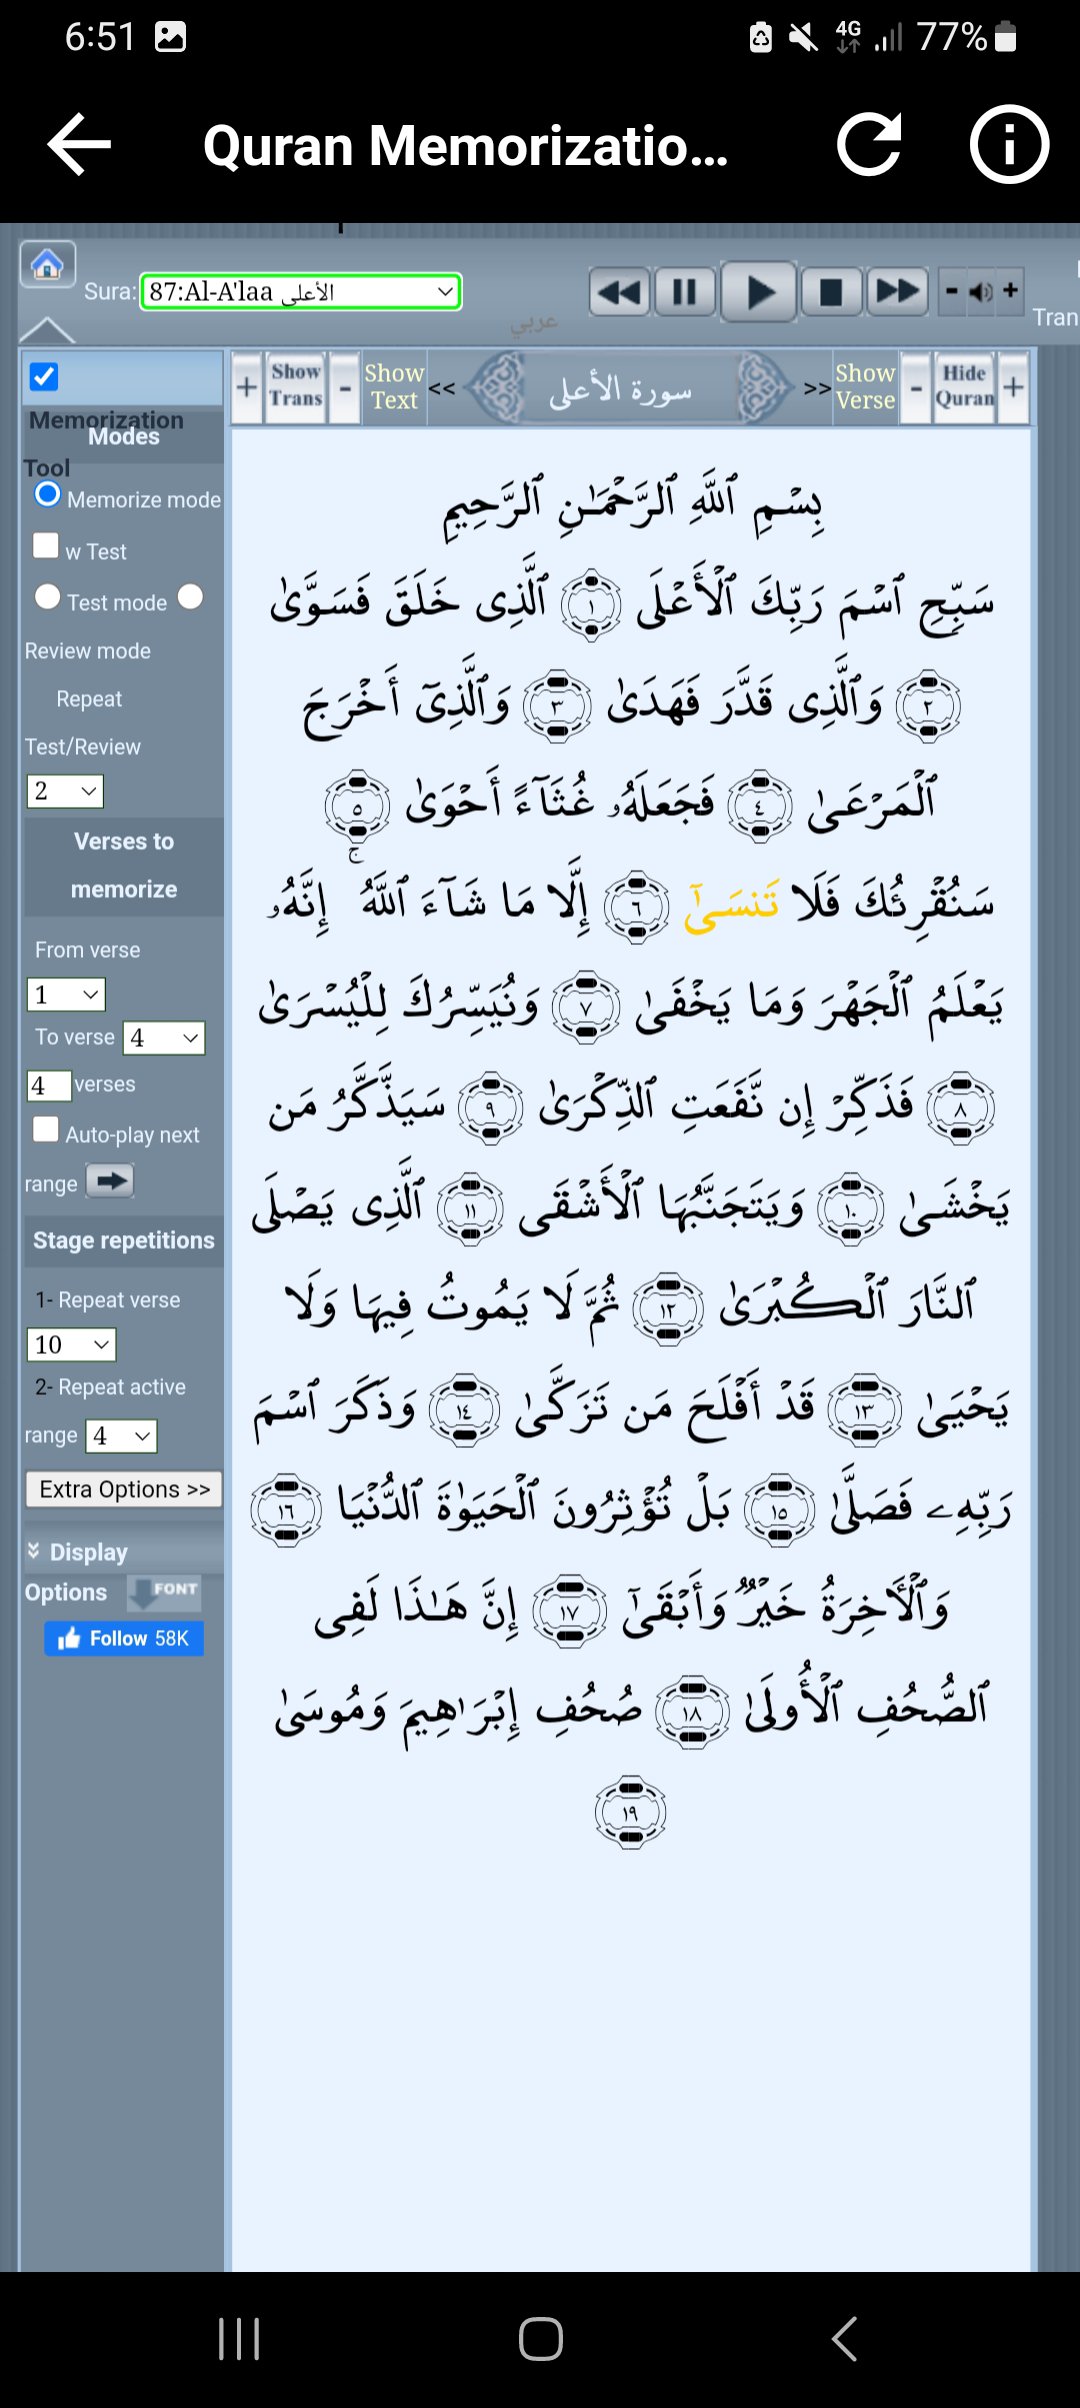 6:51
4G 77%
Quran Memorizatio...
Sura: 87:Al-A'laa الأعلى
عربي
Tran
Show Trans
Show Text
<<
سورة الأعلى
>>
Show Verse
Hide Quran
Memorization
Modes
Tool
Memorize mode
w Test
Test mode
Review mode
Repeat
Test/Review
2
Verses to
memorize
From verse
1
To verse 4
4 verses
Auto-play next
range
Stage repetitions
1- Repeat verse
10
2- Repeat active
range 4
Extra Options >>
Display
Options FONT
Follow 58K
بِسْمِ ٱللَّهِ ٱلرَّحْمَـٰنِ ٱلرَّحِيمِ
سَبِّحِ ٱسْمَ رَبِّكَ ٱلْأَعْلَى ١ ٱلَّذِى خَلَقَ فَسَوَّىٰ
٢ وَٱلَّذِى قَدَّرَ فَهَدَىٰ ٣ وَٱلَّذِىٓ أَخْرَجَ
ٱلْمَرْعَىٰ ٤ فَجَعَلَهُۥ غُثَآءً أَحْوَىٰ ٥
سَنُقْرِئُكَ فَلَا تَنسَىٰٓ ٦ إِلَّا مَا شَآءَ ٱللَّهُ ۚ إِنَّهُۥ
يَعْلَمُ ٱلْجَهْرَ وَمَا يَخْفَىٰ ٧ وَنُيَسِّرُكَ لِلْيُسْرَىٰ
٨ فَذَكِّرْ إِن نَّفَعَتِ ٱلذِّكْرَىٰ ٩ سَيَذَّكَّرُ مَن
يَخْشَىٰ ١٠ وَيَتَجَنَّبُهَا ٱلْأَشْقَى ١١ ٱلَّذِى يَصْلَى
ٱلنَّارَ ٱلْكُبْرَىٰ ١٢ ثُمَّ لَا يَمُوتُ فِيهَا وَلَا
يَحْيَىٰ ١٣ قَدْ أَفْلَحَ مَن تَزَكَّىٰ ١٤ وَذَكَرَ ٱسْمَ
رَبِّهِۦ فَصَلَّىٰ ١٥ بَلْ تُؤْثِرُونَ ٱلْحَيَوٰةَ ٱلدُّنْيَا ١٦
وَٱلْـَٔاخِرَةُ خَيْرٌ وَأَبْقَىٰٓ ١٧ إِنَّ هَـٰذَا لَفِى
ٱلصُّحُفِ ٱلْأُولَىٰ ١٨ صُحُفِ إِبْرَٰهِيمَ وَمُوسَىٰ
١٩